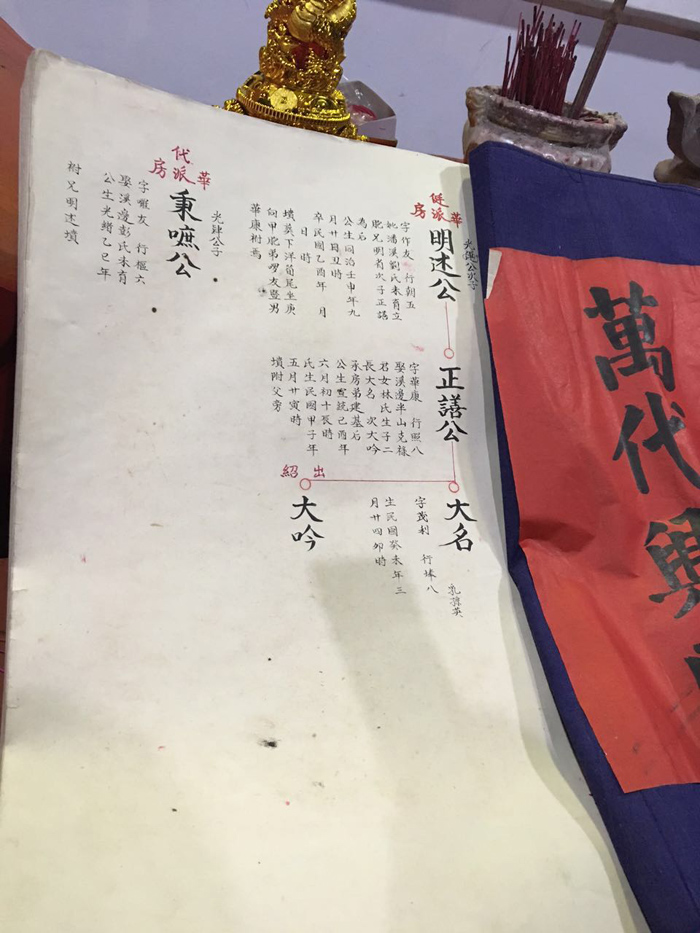 萬代興
華派
房
光鏡公次子
明述公
字作友 行朝五
妣潘溪劉氏未育立
胞兄明肖次子正譆
為后
公生同治壬申年九
月廿日丑時
卒民國乙酉年 月
日時
墳莫下洋茍尾坐庚
向甲胞弟㗅友暨男
華康祔焉
正譆公
字華康 行照八
娶溪邊半山克祿
君女林氏生子二
長大名 次大吟
承房弟建基后
公生宣統己酉年
六月初十辰時
氏生民國甲子年
五月廿寅時
墳附父旁
大名
乳孫英
字茂利 行埲八
生民國癸未年三
月廿四卯時
出紹
大吟
華派
代房
光肆公子
秉嗻公
字㗅友 行樞六
娶溪邊彭氏未育
公生光緒乙巳年
祔兄明述墳